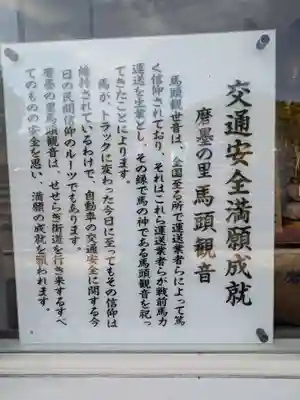 交通安全満願成就
磨墨の里 馬頭観音
馬頭観世音は、全国至る所で運送業者らによって篤
く信仰されており、それはこれら運送業者らが戦前馬力
運送を生業とし、その縁で馬の神である馬頭観音を祀っ
てきたことによります。
馬が、トラックに変わった今日に至ってもその信仰は
維持されているわけで、自動車の交通安全に関する今
日の民間信仰のルーツでもあります。
磨墨の里馬頭観音は、せせらぎ街道を行き来するすべ
てのものの安全を思い、満願の成就を願われます。